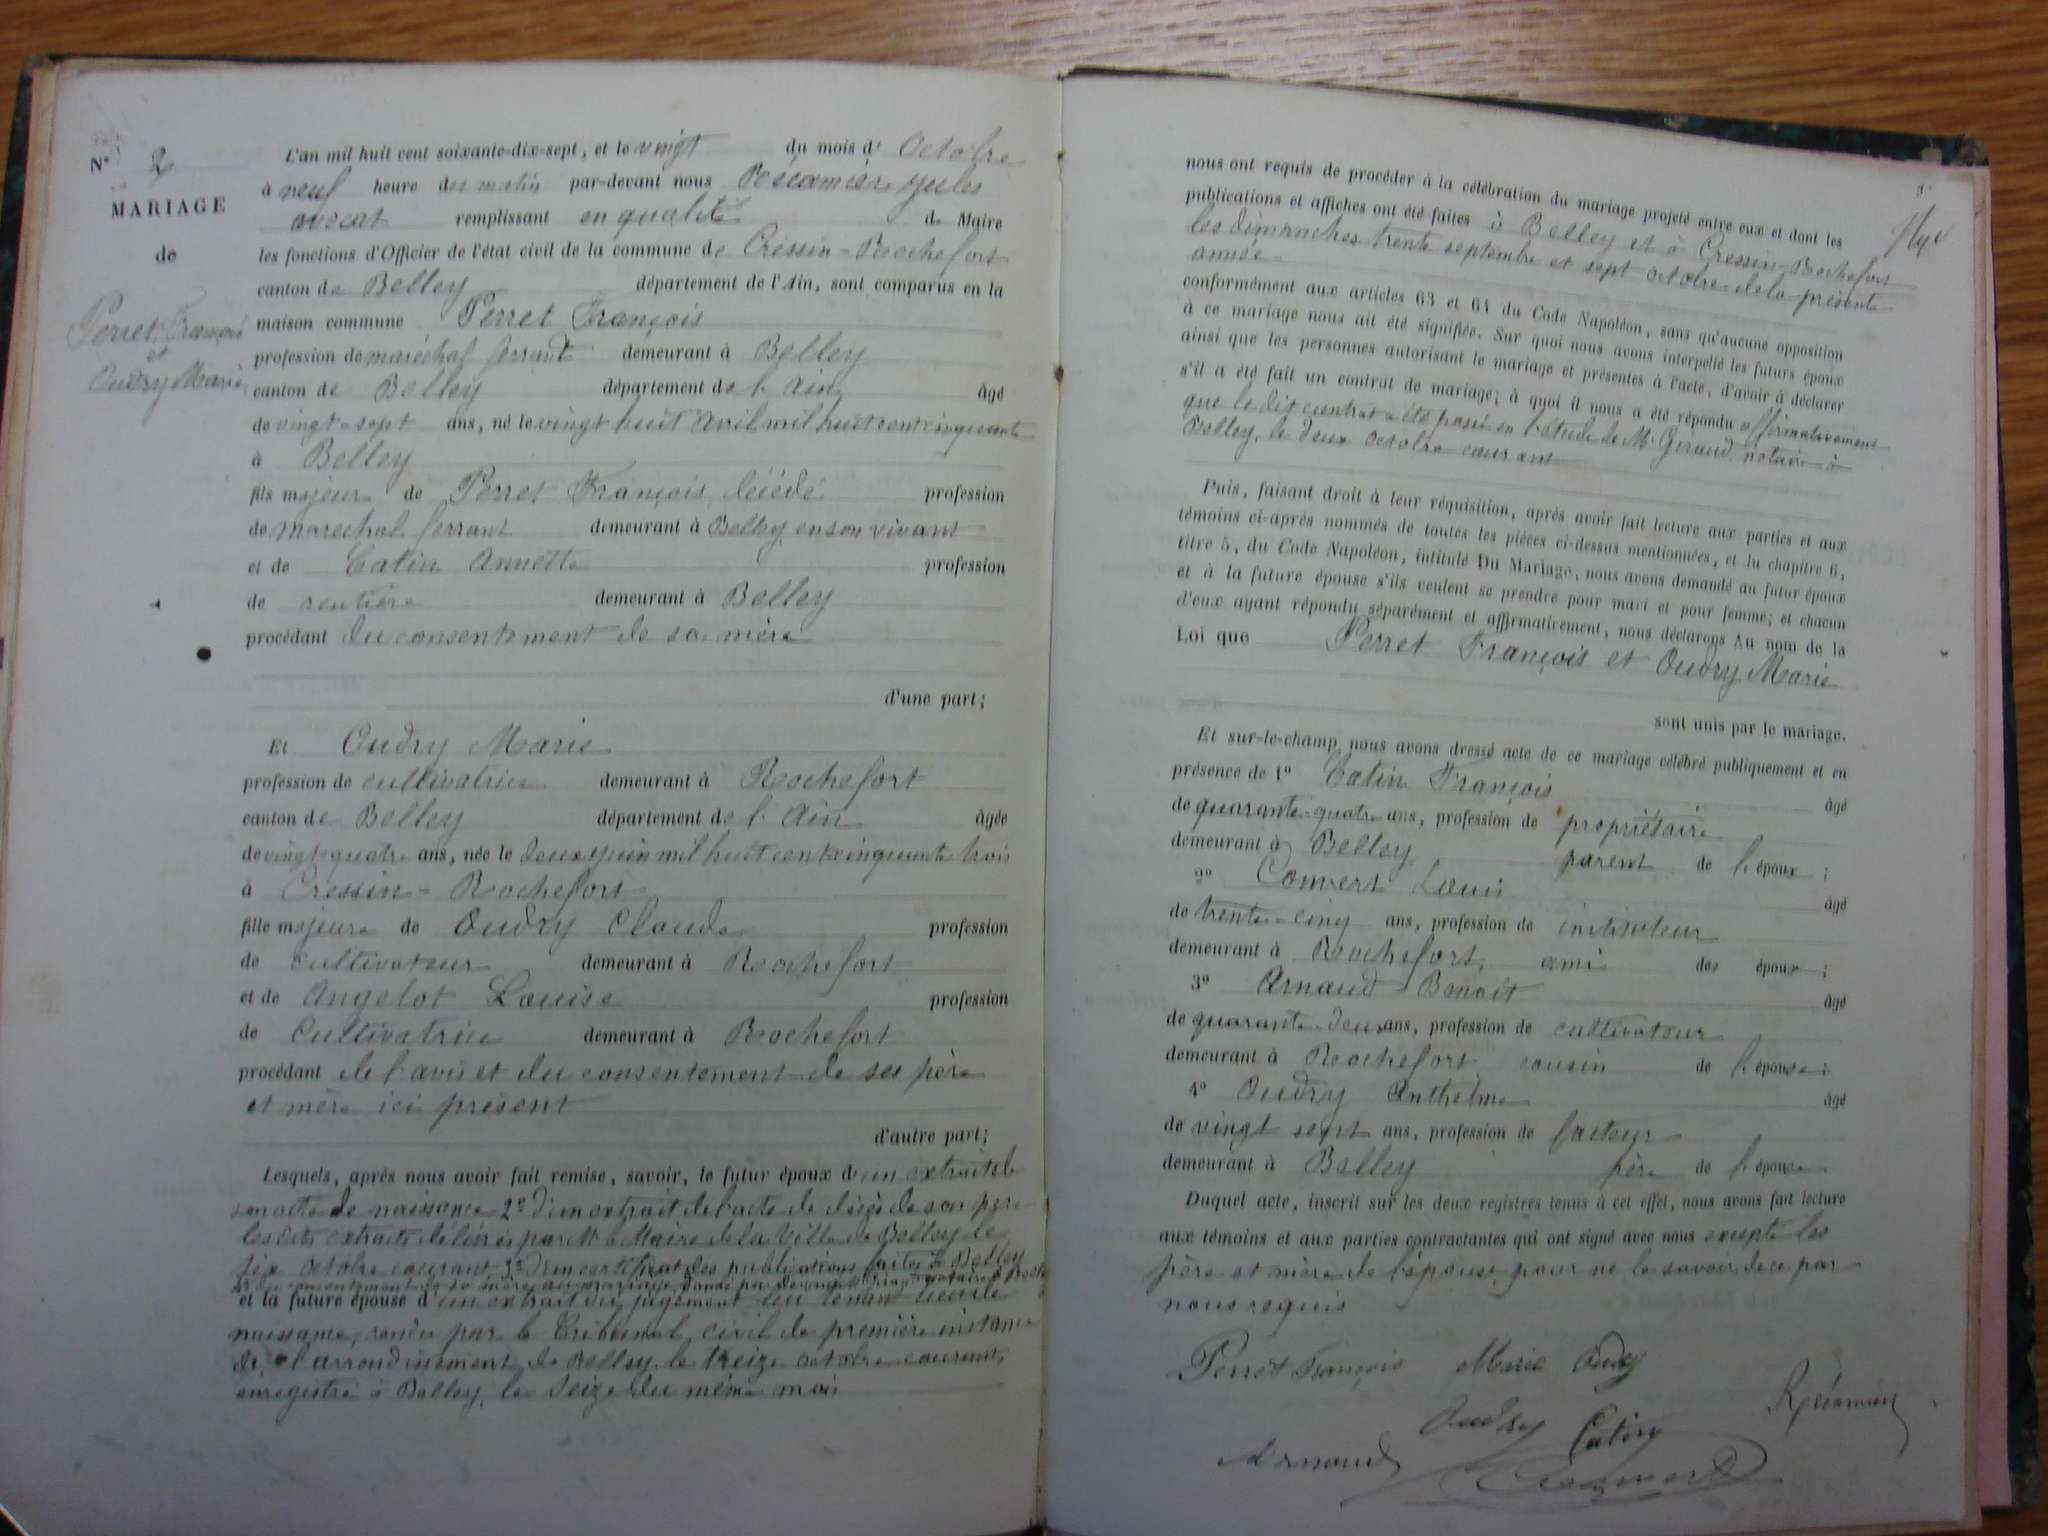 N° 2
MARIAGE
de
Perret François
et
Oudry Marie
L'an mil huit cent soixante-dix-sept, et le vingt du mois d' Octobre
à neuf heure du matin par-devant nous Récamier Jules
avocat remplissant en qualité de Maire
les fonctions d'Officier de l'état civil de la commune de Cressin-Rochefort
canton de Belley département de l'Ain, sont comparus en la
maison commune Perret François
profession de maréchal ferrant demeurant à Belley
canton de Belley département de l'Ain âgé
de vingt-sept ans, né le vingt huit avril mil huit cent cinquante
à Belley
fils majeur de Perret François, décédé profession
de maréchal ferrant demeurant à Belley, en son vivant
et de Catin Annette profession
de rentière demeurant à Belley
procédant du consentement de sa mère
d'une part;
Et Oudry Marie
profession de cultivatrice demeurant à Rochefort
canton de Belley département de l'Ain âgée
de vingt-quatre ans, née le deux juin mil huit cent cinquante trois
à Cressin-Rochefort
fille majeure de Oudry Claude profession
de cultivateur demeurant à Rochefort
et de Angelot Louise profession
de Cultivatrice demeurant à Rochefort
procédant de l'avis et du consentement de ses père
et mère ici présent
d'autre part;
Lesquels, après nous avoir fait remise, savoir, le futur époux d'un extrait de
son acte de naissance 2° d'un extrait de l'acte de décès de son père
les dits extraits délivrés par Mr le Maire de la Ville de Belley le
six octobre courant 3° d'un certificat des publications faites à Belley
4° du consentement de sa mère au mariage, donné par devant notaire à
et la future épouse d'un extrait du jugement lui tenant lieu de
naissance, rendu par le Tribunal civil de première instance
de l'arrondissement de Belley le treize octobre courant,
enregistré à Belley, le seize du même mois
nous ont requis de procéder à la célébration du mariage projeté entre eux et dont les
publications et affiches ont été faites à Belley et à Cressin-Rochefort
les dimanches trente septembre et sept octobre de la présente
année
conformément aux articles 63 et 64 du Code Napoléon, sans qu'aucune opposition
à ce mariage nous ait été signifiée. Sur quoi nous avons interpellé les futurs époux
ainsi que les personnes autorisant le mariage et présentes à l'acte, d'avoir à déclarer
s'il a été fait un contrat de mariage; à quoi il nous a été répondu affirmativement
que le dit contrat a été passé en l'étude de Mr Geraud notaire à
Belley, le deux octobre courant
Puis, faisant droit à leur réquisition, après avoir fait lecture aux parties et aux
témoins ci-après nommés de toutes les pièces ci-dessus mentionnées, et du chapitre 6,
titre 5, du Code Napoléon, intitulé Du Mariage, nous avons demandé au futur époux
et à la future épouse s'ils veulent se prendre pour mari et pour femme; et chacun
d'eux ayant répondu séparément et affirmativement, nous déclarons Au nom de la
Loi que Perret François et Oudry Marie
sont unis par le mariage.
Et sur-le-champ nous avons dressé acte de ce mariage célébré publiquement et en
présence de 1° Catin François âgé
de quarante-quatre ans, profession de propriétaire
demeurant à Belley parent de l'époux;
2° Convert Louis âgé
de trente-cinq ans, profession de instituteur
demeurant à Rochefort, ami des époux;
3° Arnaud Benoît âgé
de quarante-deux ans, profession de cultivateur
demeurant à Rochefort cousin de l'épouse;
4° Oudry Anthelme âgé
de vingt sept ans, profession de facteur
demeurant à Belley père de l'épouse
Duquel acte, inscrit sur les deux registres tenus à cet effet, nous avons fait lecture
aux témoins et aux parties contractantes qui ont signé avec nous excepté les
père et mère de l'épouse pour ne le savoir de ce par
nous requis
Perret François Marie Oudry
Récamier
Oudry Catin
Arnaud
Convert